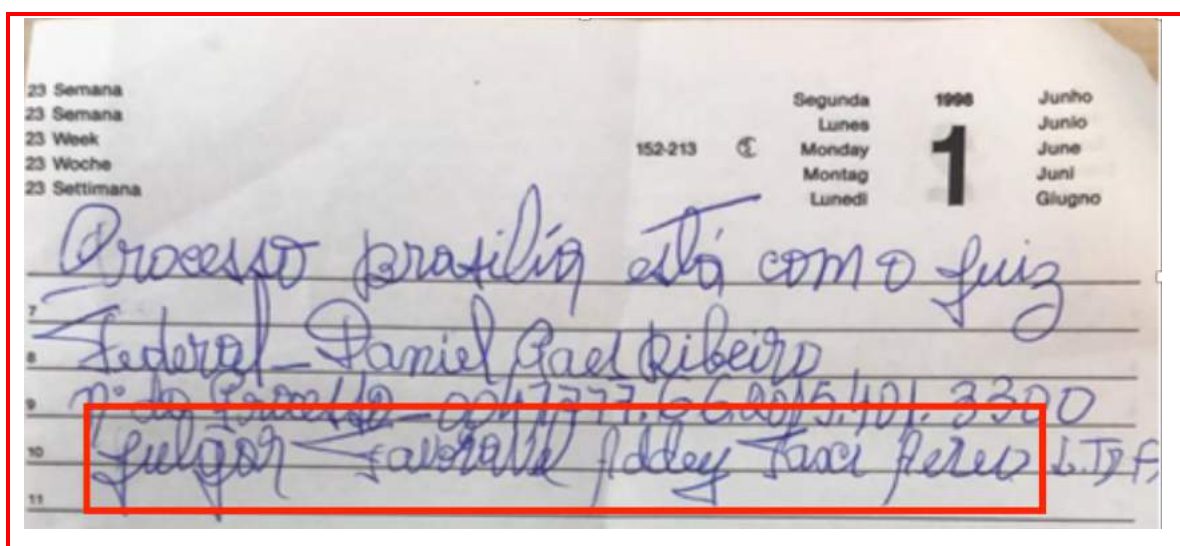 23 Semana
23 Semana
23 Week
23 Woche
23 Settimana
152-213
Segunda 1998 Junho
Lunes Junio
Monday 1 June
Montag Juni
Lunedi Giugno
Processo brasilia está como juiz
7
Federal - Daniel Paes Ribeiro
8
nº do Processo - 0047777.66.2015.401.3300
9
julgar Favoravel Addey Taxi Aereo
10
11